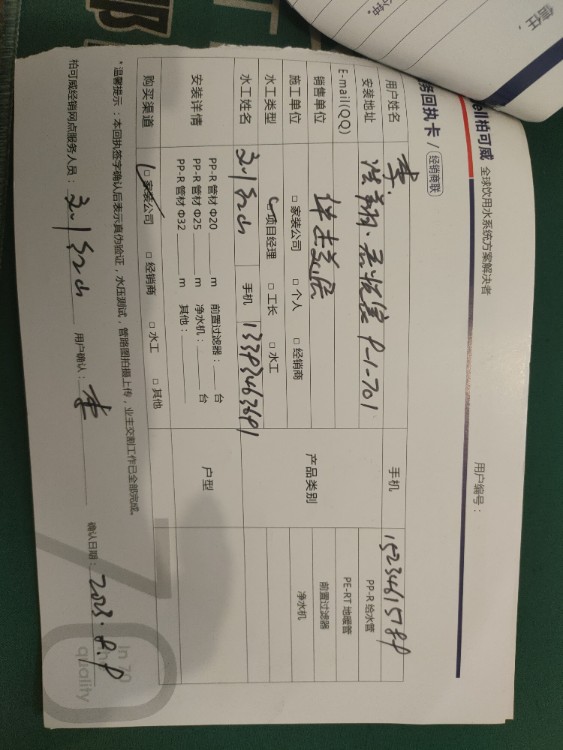 ell柏可威 全球饮用水系统方案解决者
用户编号：
务回执卡 / 经销商联
用户姓名 李. 手机
安装地址 P-1-701
E-mail(QQ)
销售单位
施工单位 □ 家装公司 □ 个人 □ 经销商
水工类型 项目经理 □ 工长 □ 水工
水工姓名 手机 13393463691
产品类别 PP-R 给水管
PE-RT 地暖管
前置过滤器
净水机
安装详情 PP-R 管材 Φ20 m 前置过滤器： 台
PP-R 管材 Φ25 m 净水机： 台
PP-R 管材 Φ32 m 其他：
户型
购买渠道 □ 家装公司 □ 经销商 □ 水工 □ 其他
*温馨提示：本回执签字确认后表示真伪验证，水压测试，管路图拍摄上传，业主交割工作已全部完成。
柏可威经销网点服务人员： 用户确认：李 确认日期：
In 70
quality
信任，